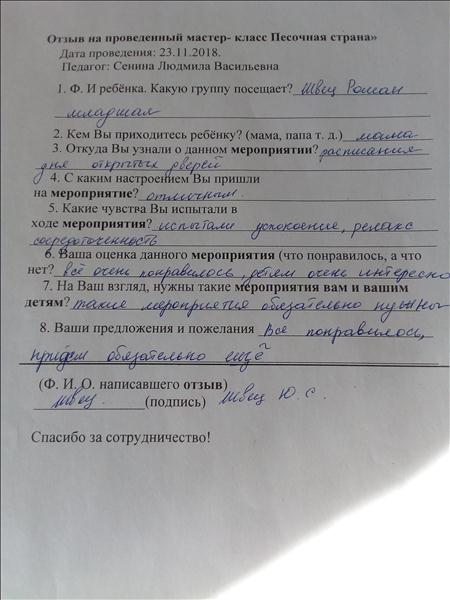 Отзыв на проведенный мастер- класс Песочная страна»
Дата проведения: 23.11.2018.
Педагог: Сенина Людмила Васильевна
1. Ф. И ребёнка. Какую группу посещает? Швец Роман
младшая
2. Кем Вы приходитесь ребёнку? (мама, папа т. д.) мама
3. Откуда Вы узнали о данном мероприятии? расписания
дня открытых дверей
4. С каким настроением Вы пришли
на мероприятие? отличным.
5. Какие чувства Вы испытали в
ходе мероприятия? испытали успокоение, релакс
сосредоточенность
6. Ваша оценка данного мероприятия (что понравилось, а что
нет? всё очень понравилось, детям очень интересно
7. На Ваш взгляд, нужны такие мероприятия вам и вашим
детям? такие мероприятия обязательно нужны
8. Ваши предложения и пожелания Всё понравилось,
придём обязательно ещё
(Ф. И. О. написавшего отзыв)
Швец. (подпись) Швец Ю. С.
Спасибо за сотрудничество!